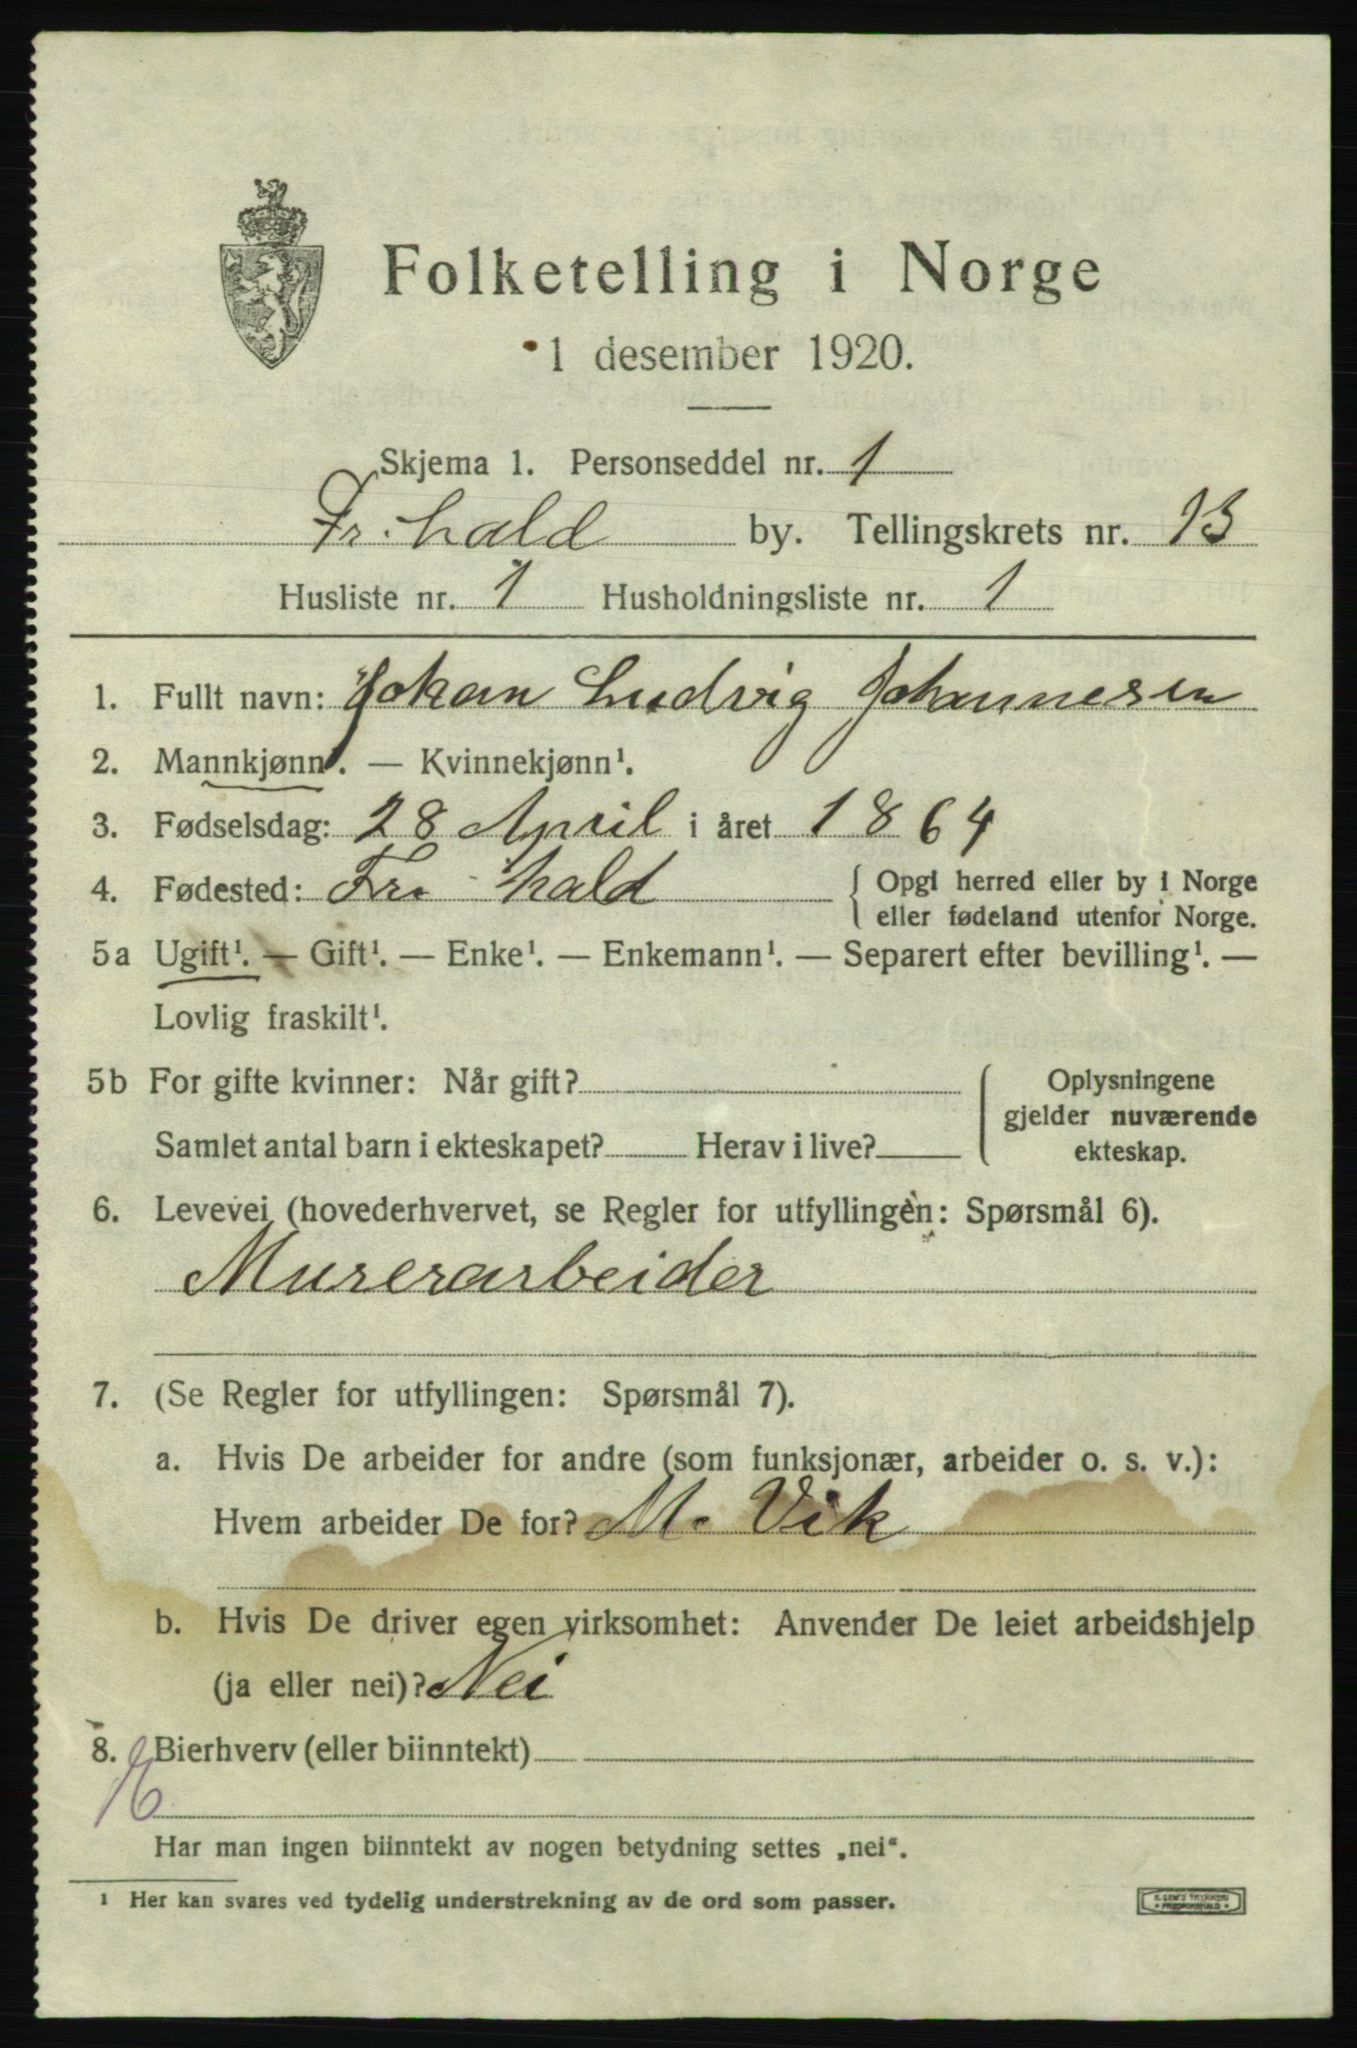 Folketelling i Norge
1 desember 1920.
Skjema 1. Personseddel nr. 1
Fr.hald by. Tellingskrets nr. 13
Husliste nr. 1 Husholdningsliste nr. 1
1. Fullt navn: Johan Ludvig Johannesen
2. Mannkjønn¹. — Kvinnekjønn¹.
3. Fødselsdag: 28 April i året 1864
4. Fødested: Fr. hald { Opgi herred eller by i Norge
eller fødeland utenfor Norge.
5a Ugift¹. — Gift¹. — Enke¹. — Enkemann¹. — Separert efter bevilling¹. —
Lovlig fraskilt¹.
5b For gifte kvinner: Når gift?
Samlet antal barn i ekteskapet? Herav i live?
Oplysningene
gjelder nuværende
ekteskap.
6. Levevei (hovederhvervet, se Regler for utfyllingen: Spørsmål 6).
Murerarbeider
7. (Se Regler for utfyllingen: Spørsmål 7).
a. Hvis De arbeider for andre (som funksjonær, arbeider o. s. v.):
Hvem arbeider De for? M. Vik
b. Hvis De driver egen virksomhet: Anvender De leiet arbeidshjelp
(ja eller nei)? Nei
8. Bierhverv (eller biinntekt)
Har man ingen biinntekt av nogen betydning settes „nei“.
¹ Her kan svares ved tydelig understrekning av de ord som passer.
E. SEM'S TRYKKERI
FREDRIKSHALD